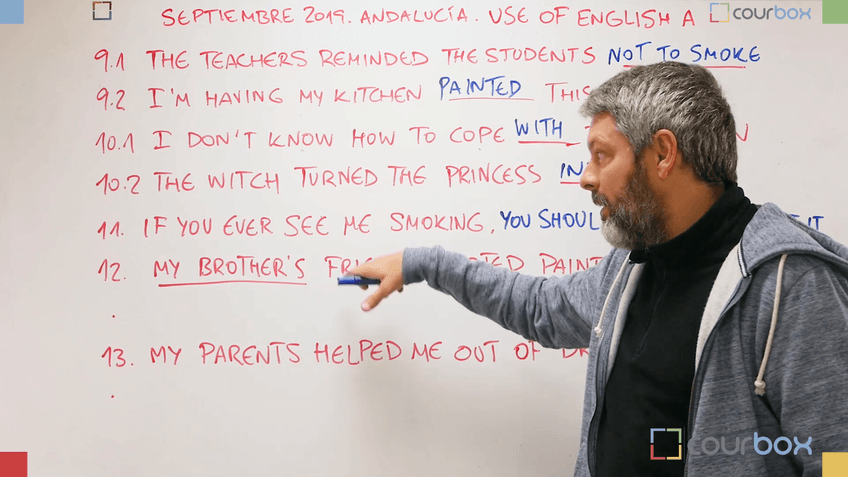 SEPTIEMBRE 2019. ANDALUCÍA. USE OF ENGLISH A
courbox
9.1 THE TEACHERS REMINDED THE STUDENTS NOT TO SMOKE
9.2 I'M HAVING MY KITCHEN PAINTED THIS
10.1 I DON'T KNOW HOW TO COPE WITH
10.2 THE WITCH TURNED THE PRINCESS
11. IF YOU EVER SEE ME SMOKING, YOU IT
12. MY BROTHER'S
13. MY PARENTS HELPED ME OUT OF
courbox